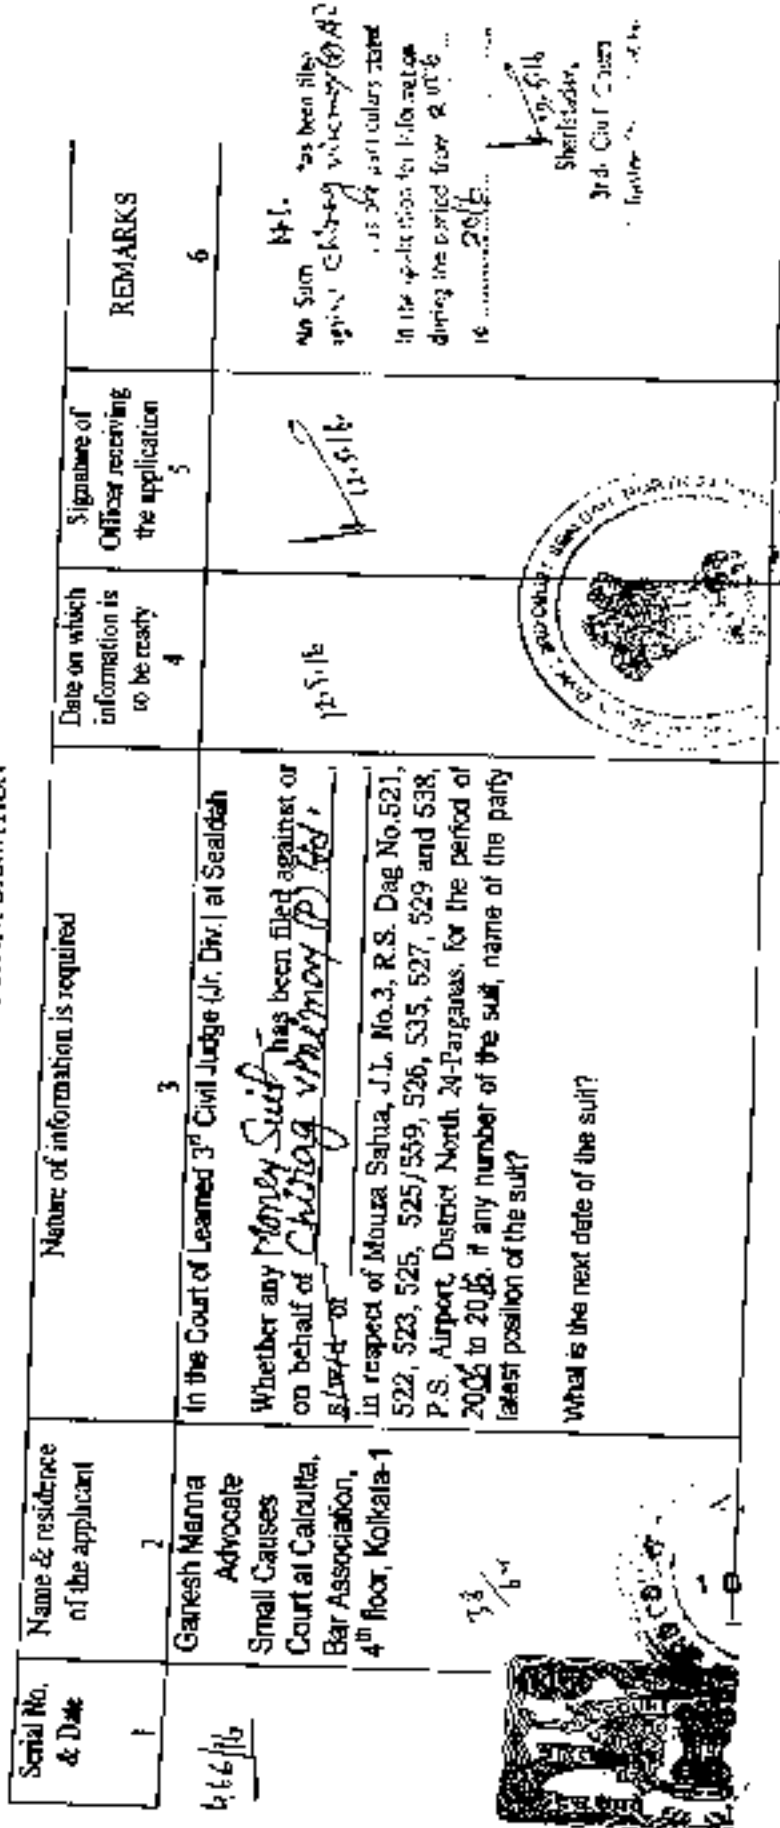 Serial No.
& Date
1
Name & residence
of the applicant
2
Nature of information is required
3
Date on which
information is
to be ready
4
Signature of
Officer receiving
the application
5
REMARKS
6
Ganesh Manna
Advocate
Small Causes
Court at Calcutta,
Bar Association,
4th floor, Kolkata-1
In the Court of Learned 3rd Civil Judge (Jr. Div.) at Sealdah
Whether any Money Suit has been filed against or
on behalf of Chirag Vinimay (P) Ltd.
s/w/d of
in respect of Mouza Salua, J.L. No.3, R.S. Dag No.521,
522, 523, 525, 525/559, 526, 535, 527, 529 and 538,
P.S. Airport, District North 24-Parganas, for the period of
to if any number of the suit, name of the party
latest position of the suit?
What is the next date of the suit?
12.5.16
12.5.16
No Such M.S. has been filed
against Chirag Vinimay (P)
as per particulars stated
in the application for information
during the period from
to 2016
Sheristadar,
3rd Civil Court